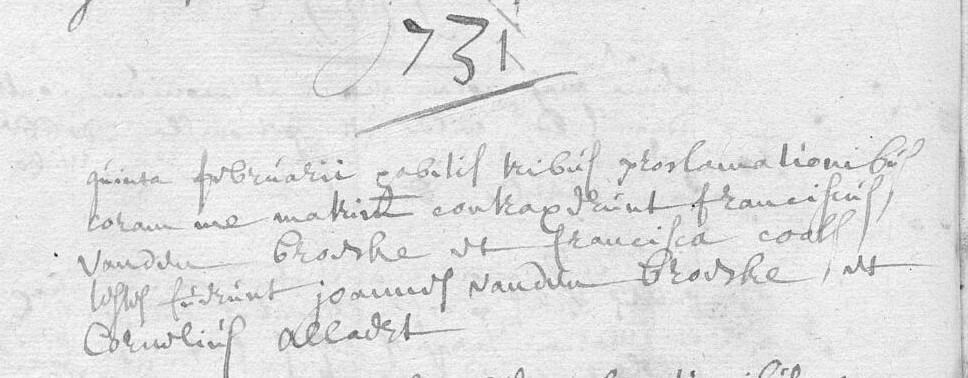 1731
quinta februarii habitis tribus proclamationibus
coram me matrim contraxerunt franciscus
vanden broecke et francisca coall
testes fuerunt joannes vanden broecke, et
Cornelius allaert